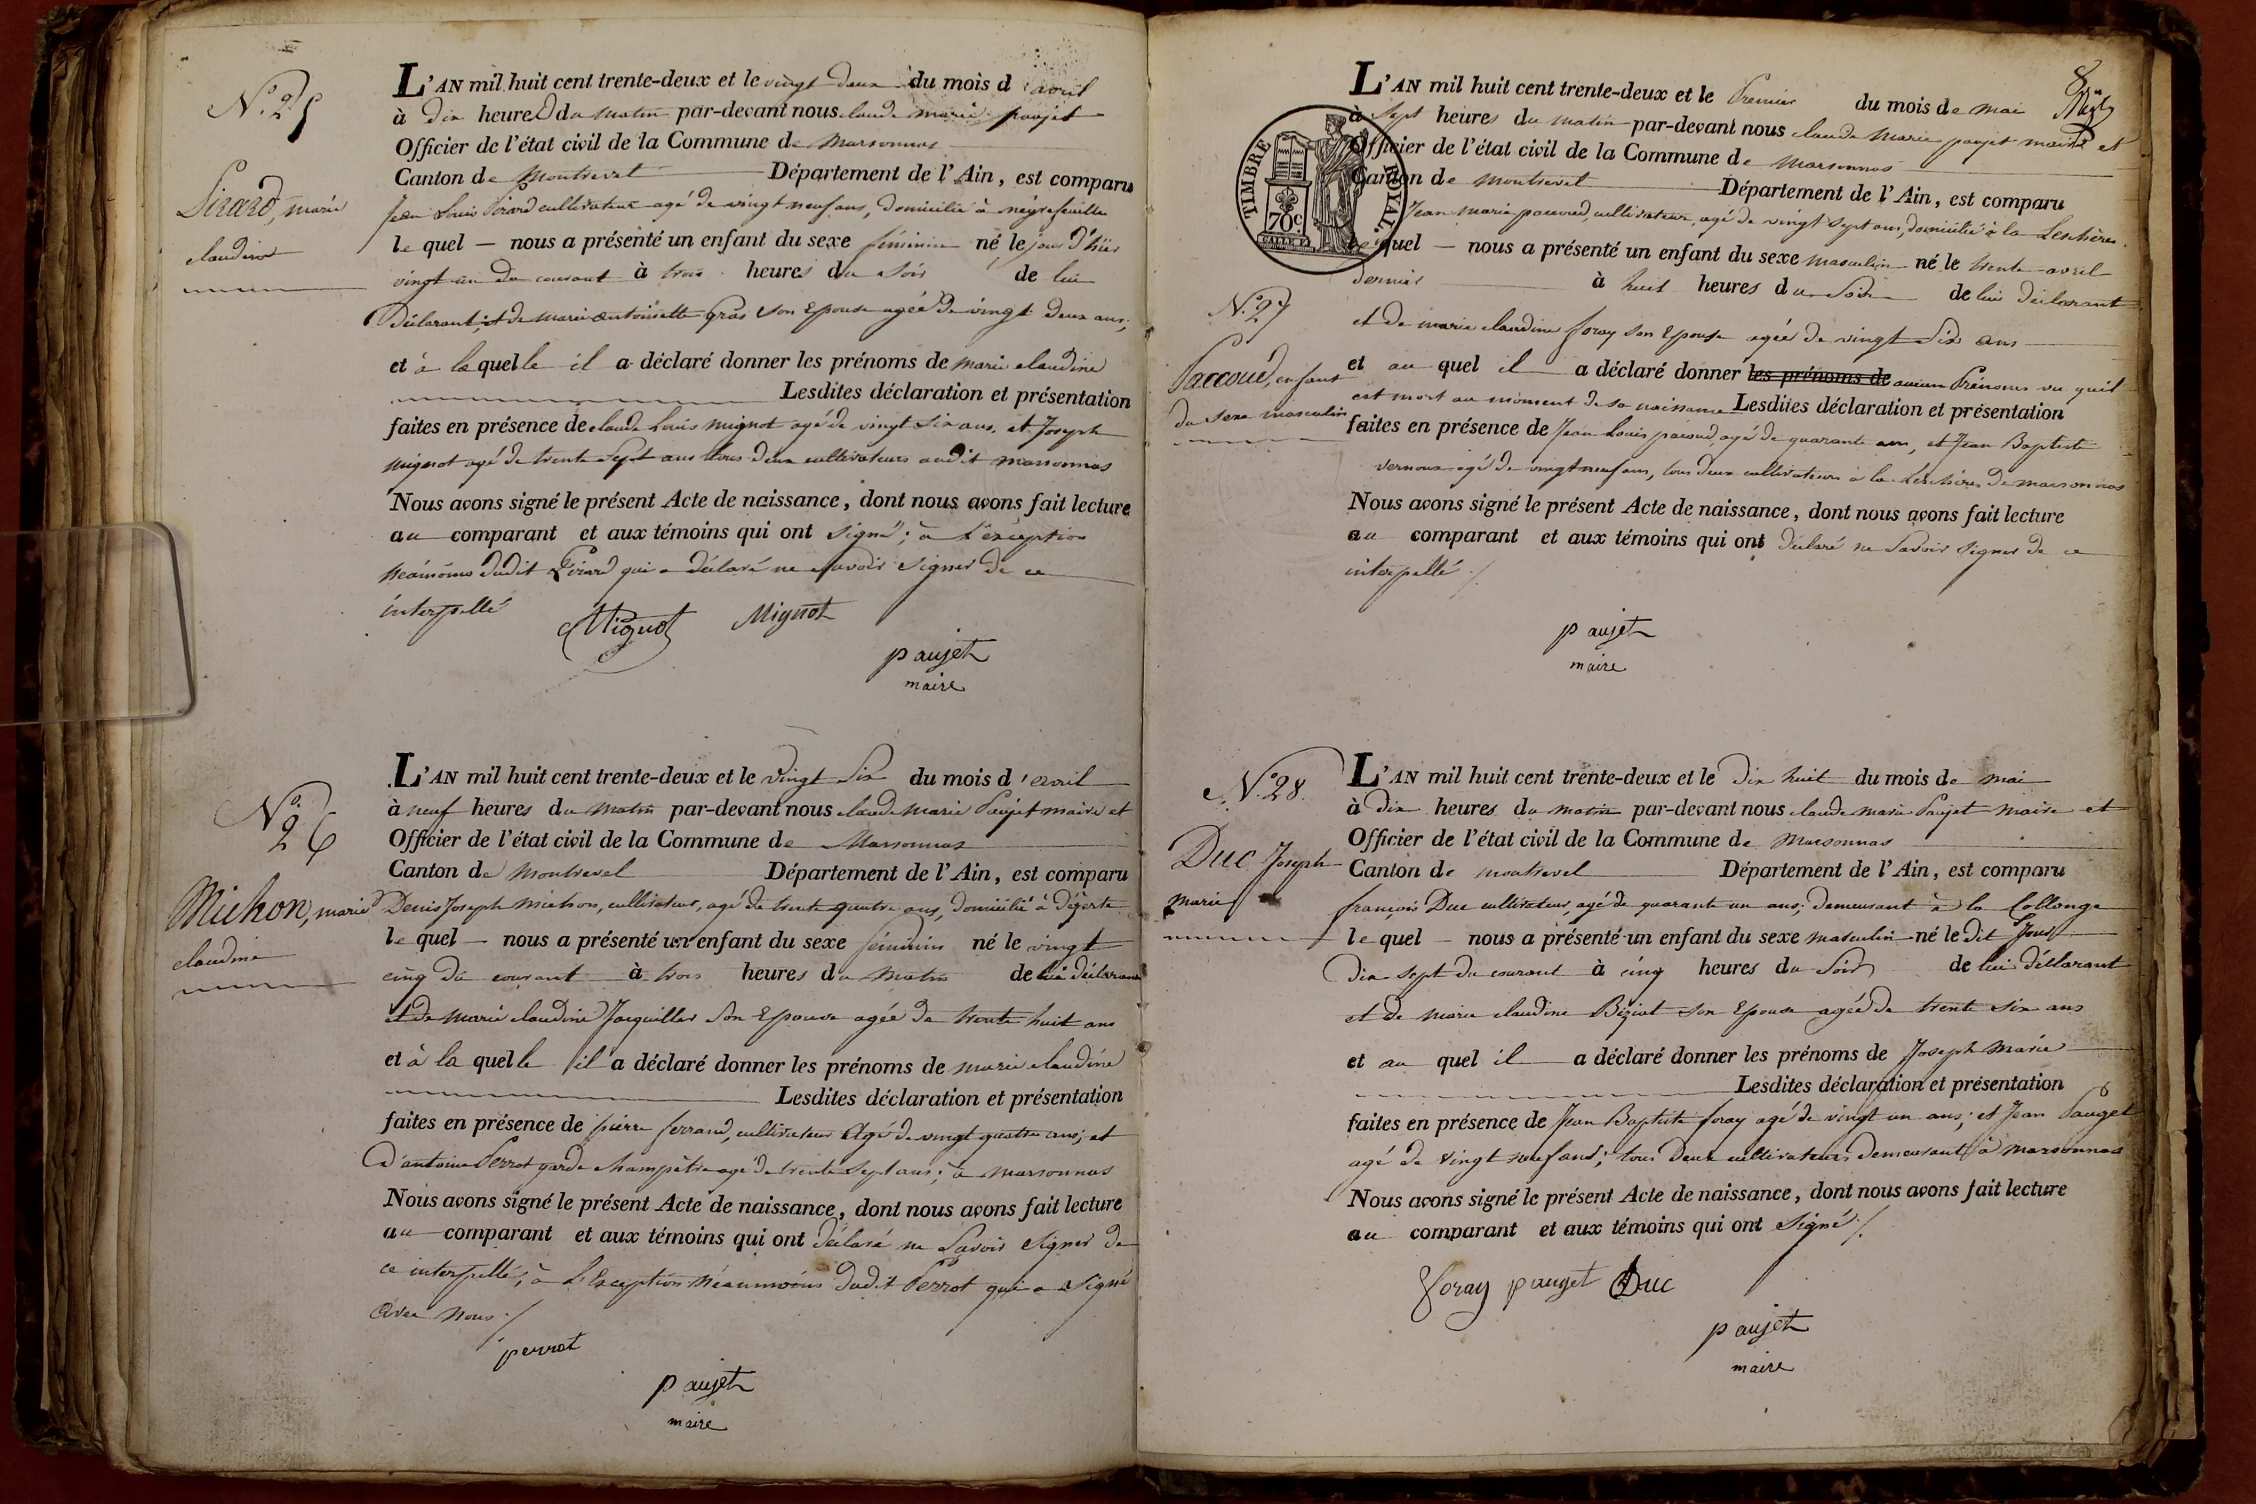 N.º 25
Pirard, marie
claudine
L'AN mil huit cent trente-deux et le vingt deux du mois d'avril
à dix heures du matin par-devant nous claude marie paujet
Officier de l'état civil de la Commune de marsonnas
Canton de Montrevel Département de l'Ain, est comparu
jean Louis Pirard cultivateur agé de vingt neuf ans, domicilié à négrefeuille
le quel — nous a présenté un enfant du sexe féminin né le jour d'hier
vingt un du courant à trois heures du soir de lui
Déclarant, et de marie antoinette Gras son Epouse agée de vingt deux ans,
et à la quelle il a déclaré donner les prénoms de marie claudine
Lesdites déclaration et présentation
faites en présence de claude Louis mignot agé de vingt six ans, et Joseph
mignot agé de trente sept ans tous deux cultivateurs audit marsonnas
Nous avons signé le présent Acte de naissance, dont nous avons fait lecture
au comparant et aux témoins qui ont signé; à l'éxception
néanmoins dudit Pirard qui a déclaré ne savoir signer de ce
interpellé
Mignot Mignot
paujet
maire
N.º 26
Michon, marie
claudine
L'AN mil huit cent trente-deux et le vingt six du mois d'avril
à neuf heures du matin par-devant nous claude marie Paujet maire et
Officier de l'état civil de la Commune de Marsonnas
Canton de Montrevel Département de l'Ain, est comparu
Denis Joseph michon, cultivateur, agé de trente quatre ans, domicilié à
le quel — nous a présenté un enfant du sexe féminin né le vingt
cinq du courant à trois heures du matin de lui déclarant
et de marie claudine Jacquiller son Epouse agée de trente huit ans
et à la quelle il a déclaré donner les prénoms de marie claudine
Lesdites déclaration et présentation
faites en présence de pierre ferrand, cultivateur agé de vingt quatre ans; et
d'antoine Perrot garde champêtre agé de trente sept ans; à marsonnas
Nous avons signé le présent Acte de naissance, dont nous avons fait lecture
au comparant et aux témoins qui ont déclaré ne savoir signer de
ce interpellé; à L'Exception néanmoins dudit Perrot qui a signé
avec nous ./
perrot
paujet
maire
8
TIMBRE ROYAL
70c
N.º 27
Paccoud, enfant
du sexe masculin
L'AN mil huit cent trente-deux et le Premier du mois de mai
à sept heures du matin par-devant nous claude Marie paujet maire et
Officier de l'état civil de la Commune de marsonnas
Canton de montrevel Département de l'Ain, est comparu
Jean marie paccoud, cultivateur, agé de vingt sept ans, domicilié à la Leschères
le quel — nous a présenté un enfant du sexe masculin né le trente avril
dernier à huit heures du soir de lui déclarant
et de marie claudine foray son Epouse agée de vingt six ans
et au quel il a déclaré donner les prénoms de aucun Prénoms vu qu'il
est mort au moment de sa naissance Lesdites déclaration et présentation
faites en présence de Jean Louis pacoud, agé de quarante ans, et Jean Baptiste
vernoux agé de vingt neuf ans, tous deux cultivateurs à la Leschères de marsonnas
Nous avons signé le présent Acte de naissance, dont nous avons fait lecture
au comparant et aux témoins qui ont déclaré ne savoir signer de ce
interpellé ./
paujet
maire
N.º 28.
Duc Joseph
marie
L'AN mil huit cent trente-deux et le Dix huit du mois de mai
à dix heures du matin par-devant nous claude marie Paujet maire et
Officier de l'état civil de la Commune de Marsonnas
Canton de montrevel Département de l'Ain, est comparu
françois Duc cultivateur, agé de quarante un ans; demeurant à la Collonge
le quel — nous a présenté un enfant du sexe masculin né le dit Jour
Dix sept du courant à cinq heures du soir de lui déclarant
et de marie claudine Béziat son Epouse agée de trente six ans
et au quel il a déclaré donner les prénoms de Joseph Marie
Lesdites déclaration et présentation
faites en présence de Jean Baptiste foray agé de vingt un ans; et Jean Pauget
agé de vingt neuf ans; tous deux cultivateurs demeurant à marsonnas
Nous avons signé le présent Acte de naissance, dont nous avons fait lecture
au comparant et aux témoins qui ont signé ./
foray pauget Duc
paujet
maire